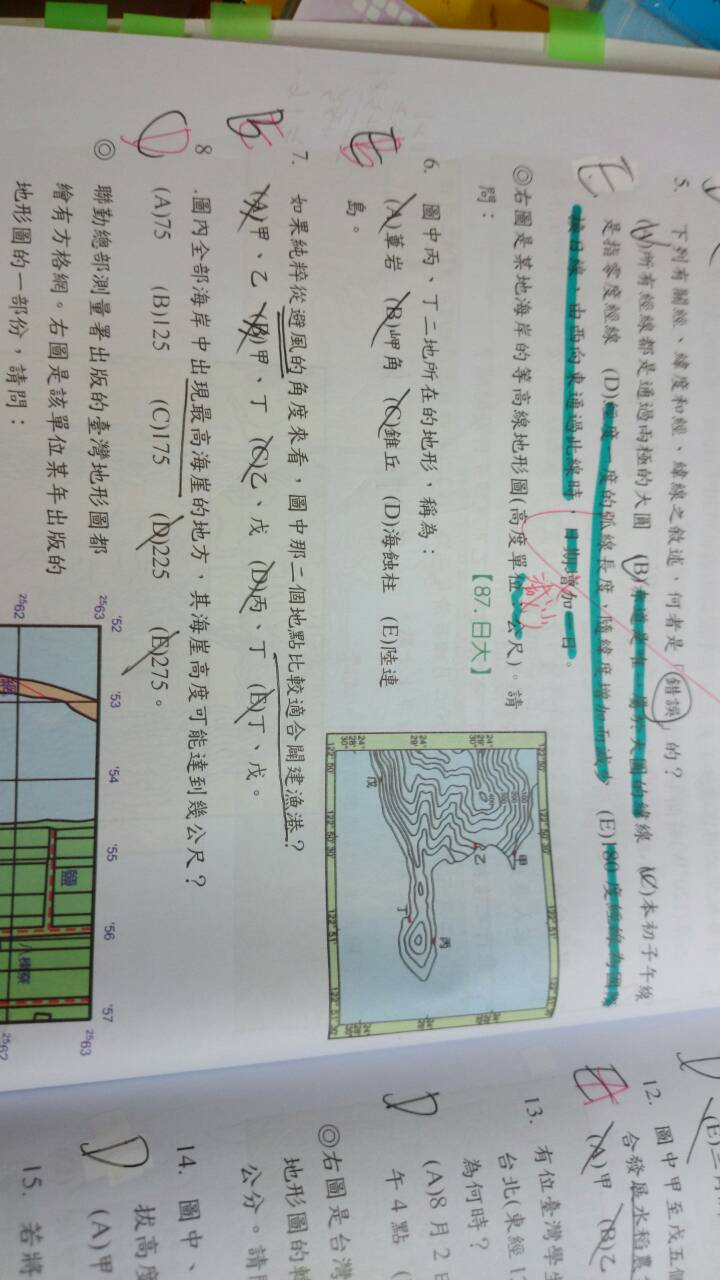 5. 下列有關經、緯度和經、緯線之敘述，何者是「錯誤」的？
(A)所有經線都是通過兩極的大圓 (B)赤道是唯一屬於大圓的緯線 (C)本初子午線
是指零度經線 (D)經度一度的弧線長度，隨緯度增加而減少 (E)180度經線為國際
換日線，由西向東通過此線時，日期增加一日。
減少
E
◎右圖是某地海岸的等高線地形圖(高度單位：公尺)。請
問：
【87.日大】
6. 圖中丙、丁二地所在的地形，稱為：
(A)蕈岩 (B)岬角 (C)錐丘 (D)海蝕柱 (E)陸連
島。
E
7. 如果純粹從避風的角度來看，圖中那二個地點比較適合闢建漁港？
(A)甲、乙 (B)甲、丁 (C)乙、戊 (D)丙、丁 (E)丁、戊。
8.圖內全部海岸中出現最高海崖的地方，其海崖高度可能達到幾公尺？
(A)75 (B)125 (C)175 (D)225 (E)275。
D
◎ 聯勤總部測量署出版的臺灣地形圖都
繪有方格網。右圖是該單位某年出版的
地形圖的一部份，請問：
甲
乙
丙
丁
戊
122°50'
122°50'30"
122°51'
²⁵63
'52
'53
'54
'55
'56
'57
²⁵63
²⁵62
²⁵62
鹽
12. 圖中甲至戊五個
合發展水稻農
(A)甲 (B)乙
13. 有位臺灣學生
台北(東經1
為何時？
(A)8月2日
午4點
D
◎右圖是台灣
地形圖的
公分。請
14. 圖中、
拔高度
(A)甲
D
15. 若將